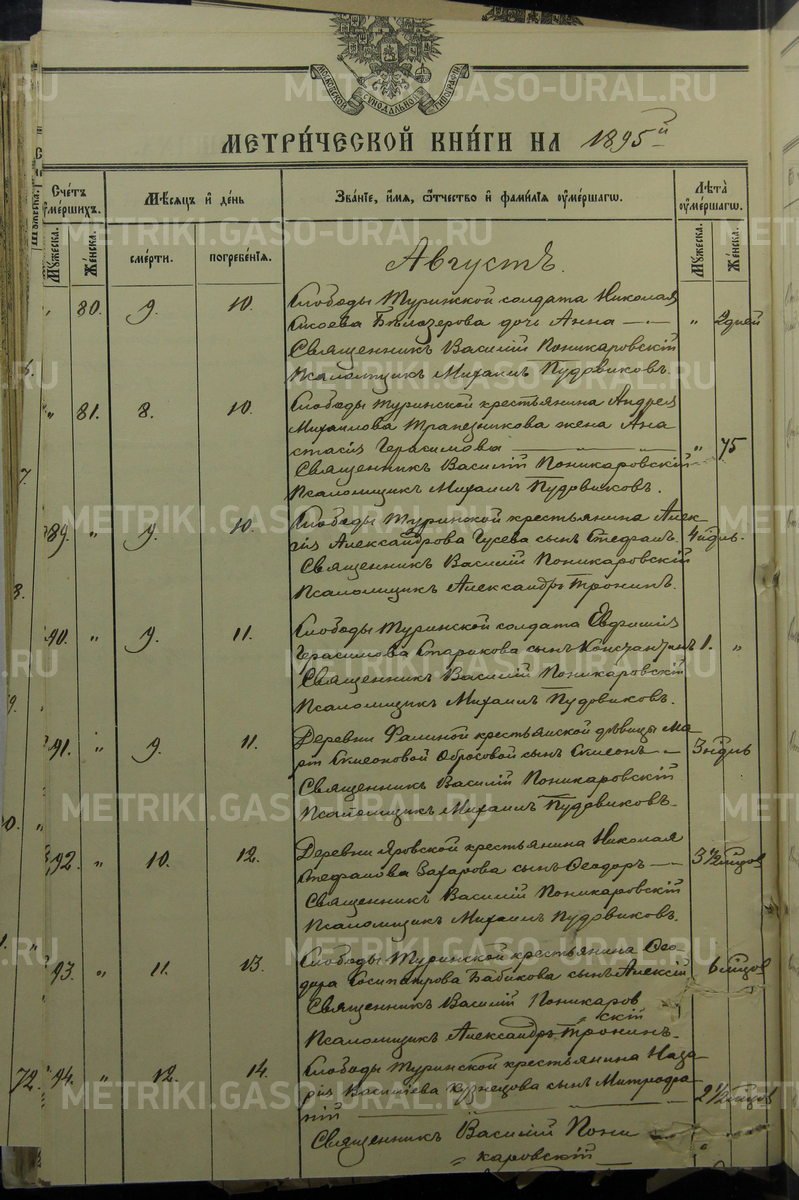 МОСКОВСКОЙ СѴНОДАЛЬНОЙ ТИПОГРАФІИ
МЕТРИ́ЧЕСКОЙ КНИ́ГИ НА 1895й
Сче́тъ ᲂумершихъ.
Мѣ́сяцъ и де́нь
Зва́нїе, и́мя, ѻ҆́тчество и фами́лїя ᲂумершагѡ.
Лѣта̀ ᲂумершагѡ.
Мꙋжеска.
Же́нска.
сме́рти.
погребе́нїя.
Мꙋжеска.
Же́нска.
Августъ.
" 80. 9. 10. Слободы Туринской солдата Николая
Бѣлозерова дочь Анна — " 2 дней
Священникъ Василій Поникаровскій
Псаломщикъ Михаилъ Пудовиковъ.
" 81. 8. 10. Слободы Туринской крестьянина Андрея
Михаилова Трапезникова жена Ана
стасія Герасимова — " 75
Священникъ Василій Поникаровскій
Псаломщикъ Михаилъ Пудовиковъ.
89. " 9. 10. Слободы Туринской крестьянина Алек-
Александрова Гусева сынъ Стефанъ. 4 ндѣль.
Священникъ Василій Поникаровскій
Псаломщикъ Александръ Тронинъ.
90. " 9. 11. Слободы Туринской солдата Евфимія
Герасимова Старикова сынъ Константинъ 1. "
Священникъ Василій Поникаровскій
Псаломщикъ Михаилъ Пудовиковъ.
91. " 9. 11. Деревни Фалиной крестьянской дѣвицы Ма-
Симеоновой Обросовой сынъ Симеонъ — 3 ндѣль
Священникъ Василій Поникаровскій
Псаломщикъ Михаилъ Пудовиковъ.
92. " 10. 12. Деревни Яровской крестьянина Николая
Стефанова Захарова сынъ Ѳеодоръ — 3 1/2 мѣцов
Священникъ Василій Поникаровскій
Псаломщикъ Михаилъ Пудовиковъ.
93. " 11. 13. Слободы Туринской крестьянина Ѳео-
дора Сосипатрова Бабикова сынъ Алексій 6 мѣцов
Священникъ Василій Поникаров
скій
Псаломщикъ Александръ Тронинъ.
94. " 12. 14. Слободы Туринской крестьянина Наза-
рія Васильева Кузнецова сынъ Митрофа-
ній — 2 1/2 мѣцов
Священникъ Василій Пони
каровскій
72.
METRIKI.GASO-URAL.RU